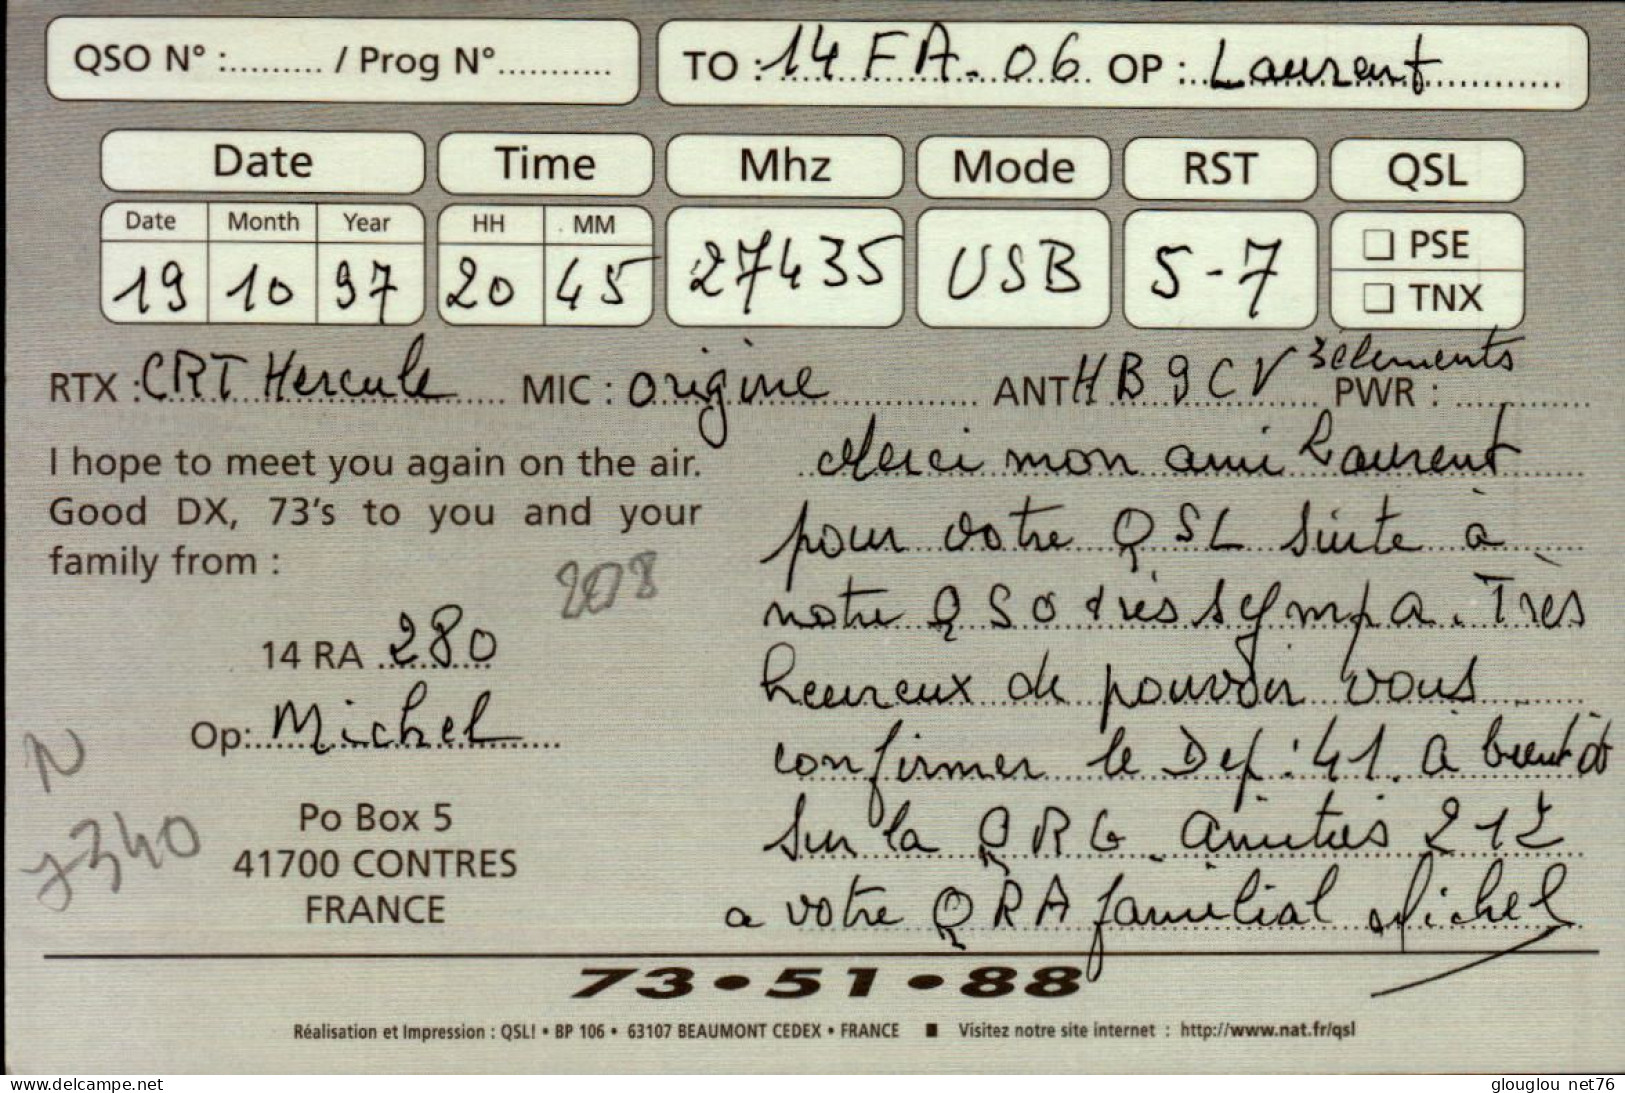 QSO N° :......... / Prog N°............
TO : 14 FA - 06 OP : Laurent
Date Time Mhz Mode RST QSL
Date Month Year HH MM
19 10 97 20 45 27435 USB 5-7
PSE
TNX
RTX : CRT Hercule MIC : origine ANT HB9CV 3 elements PWR :
I hope to meet you again on the air.
Good DX, 73's to you and your
family from :
208
14 RA 280
Op: Michel
N
7340
Po Box 5
41700 CONTRES
FRANCE
Merci mon ami Laurent
pour votre QSL suite à
notre QSO très sympa. Très
heureux de pouvoir vous
confirmer le Dep : 41. A bientôt
sur la QRG. Amitiés 212
a votre QRA familial Michel
73•51•88
Réalisation et Impression : QSL! • BP 106 • 63107 BEAUMONT CEDEX • FRANCE ■ Visitez notre site internet : http://www.nat.fr/qsl
www.delcampe.net
glouglou net76